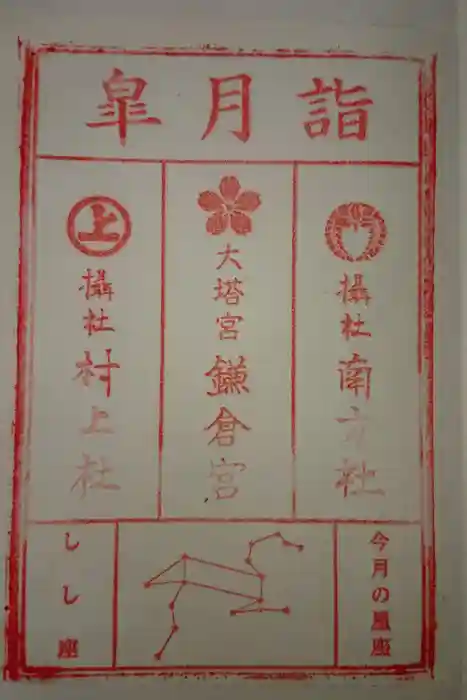 皐月詣
摂社
南方社
大塔宮
鎌倉宮
上
摂社
村上社
今月の星座
しし座